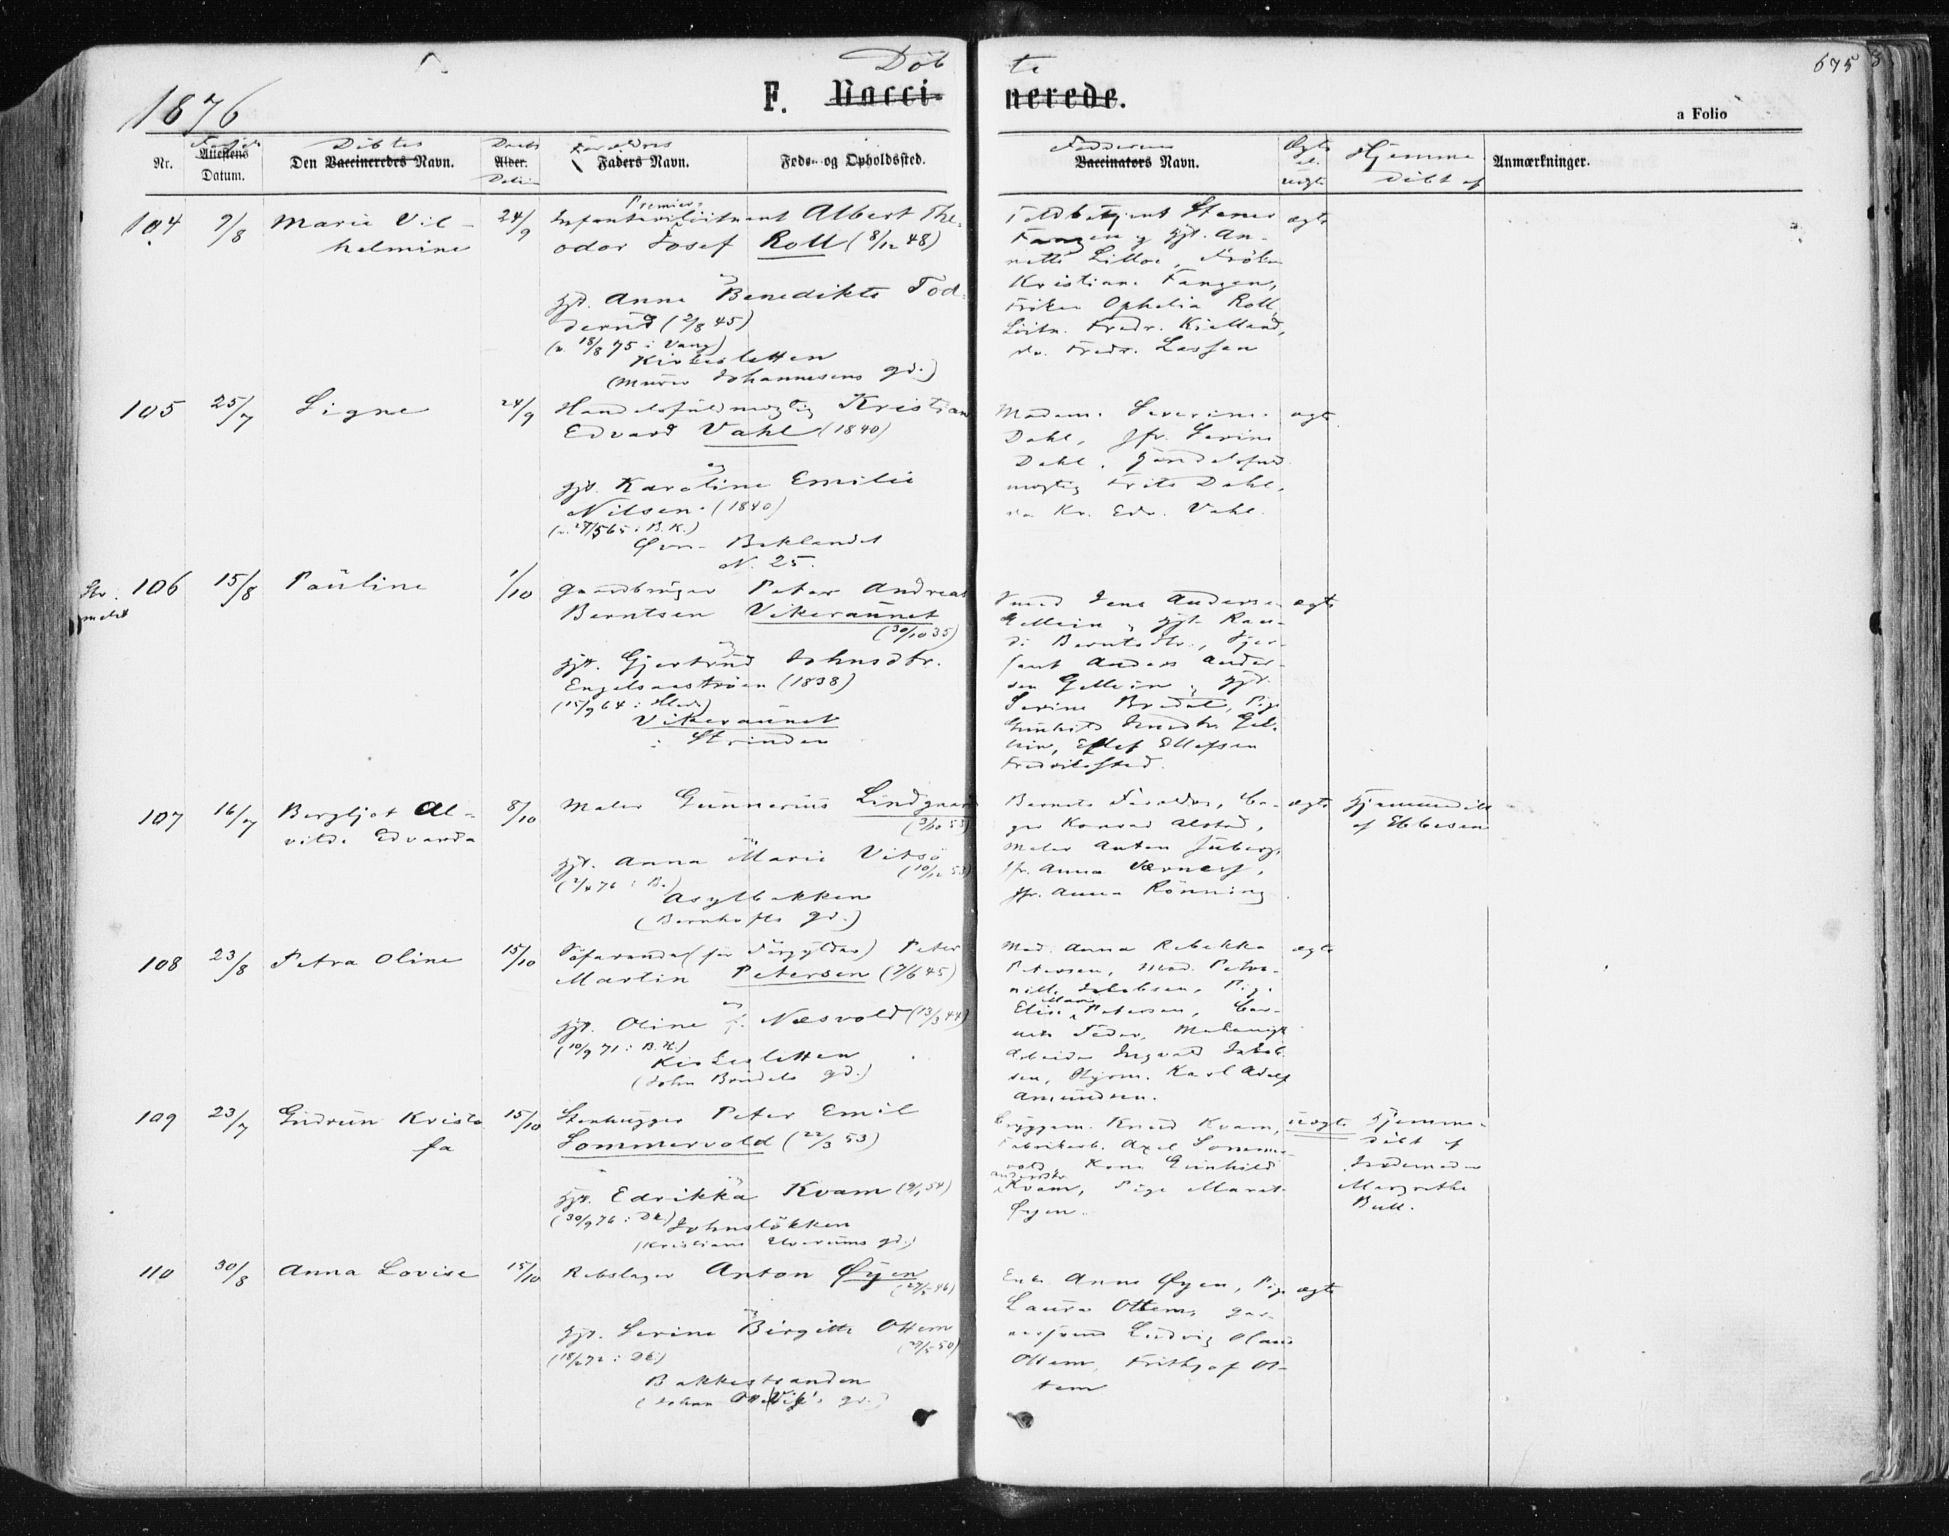 1876
Döbte
675
F. Vaccinerede.
a Folio
Nr.
Attestens Datum.
Döbtes
Den Vaccineredes Navn.
Daabs
Alder.
Forældres
Faders Navn.
Føde- og Opholdssted.
Faddernes
Vaccinators Navn.
Ægte el. uægte
Hjemmedöbt af
Anmærkninger.
104 9/8 Marie Vil-
helmine
24/9
Premier
Infanteriløitnant Albert The-
odor Josef Roll (8/12 48)
og
gjt. Anne Benedikte Tod-
derud (2/8 45)
(v. 18/8 75 i Vang)
Kirkesletten
(Murer Johannesens gd.)
Feldbetjent Stener
Fangen og hjt. An-
nette Lilloe, Fröken
Kristiane Fangen,
Fröken Ophelia Roll,
Löitn. Fredr. Kielland,
do. Fredr. Lassen
ægte
105 25/7 Signe
24/9
Handelsfuldmægtig Kristian
Edvard Vahl (1840)
og
gjt. Karoline Emilie
Nilsen (1840)
(v. 27/5 65 i B.K.)
Øvre Baklandet
N. 25.
Madam Severine
Dahl, Jfr. Serine
Dahl, Handelsfuld-
mægtig Frits Dahl,
Kr. Edv. Vahl.
ægte
Str.
meldt
106 15/8 Pauline
1/10
Gaardbruger Peter Andreas
Berntsen Vikeraunet
(30/10 35)
og
gjt. Gjertrud Johnsdtr.
Engelsaastrøen (1838)
(15/9 64 i Hlade)
Vikeraunet
i Strinden
Smed Jens Andersen
Gellein og hjt. Ran-
di Berntsdtr., Ser-
sant Anders Ander-
sen Gellein og hjt.
Serine Bredal, Pige
Gunhild Jensdtr. Gel-
lein, Ellef Ellefsen
Fredriksstad.
ægte
107 16/7 Bergljot Al-
vilde Edvarda
8/10
Maler Gunnerius Lindgaard
(3/10 53)
gjt. Anna Marie Vitsö
(10/12 53)
(2/4 76 i B.)
Asylbakken
(Bernhofts gd.)
Barnets Forældre, Ba-
ger Konrad Alstad,
Maler Anton Juberg,
Jfr. Anna Værnes,
Jfr. Anna Rönning.
ægte
Hjemmedöbt
af Ebbesen
108 23/8 Petra Oline
15/10
Söfarende (för Forgylder) Peter
Martin Petersen (7/6 45)
og
gjt. Oline Næsvold (13/3 44)
(10/9 71 i B.K.)
Kirkesletten
(John Brudals gd.)
Mad. Anna Rebekka
Petersen, Mad. Petro-
nille Jakobsen, Pige
Elise Marie Petersen, Bar-
nets Fader, Mekanisk
Arbeider Ingvald Jakob-
sen, Styrm. Karl Adolf
Amundsen.
ægte
109 23/7 Gudrun Kristo-
fa
15/10
Stenhugger Peter Emil
Sommervold (22/3 53)
gjt. Edrikka Kvam (9/1 54)
(30/9 76 i Dk.)
Johnslökken
(Kristians Elverums gd.)
Bryggem. Knud Kvam,
Fabrikarb. Axel Sommer-
vold, Kone Gunhild
Andersdtr.
Kvam, Pige Marit
Øyen.
uægte
Hjemme-
döbt af
Jordemoder
Margrethe
Bull.
110 30/8 Anna Lovise
15/10
Rebslager Anton Øyen
(27/5 46)
og
gjt. Serine Birgitte Ottem
(27/5 50)
(18/2 72 i Dk.)
Bakkestranden
(Johan Vigs gd.)
Enke Anne Øyen, Pige
Laura Ottem, Gar-
versvend Ludvig Olaus
Ottem, Frithjof Ot-
tem
ægte